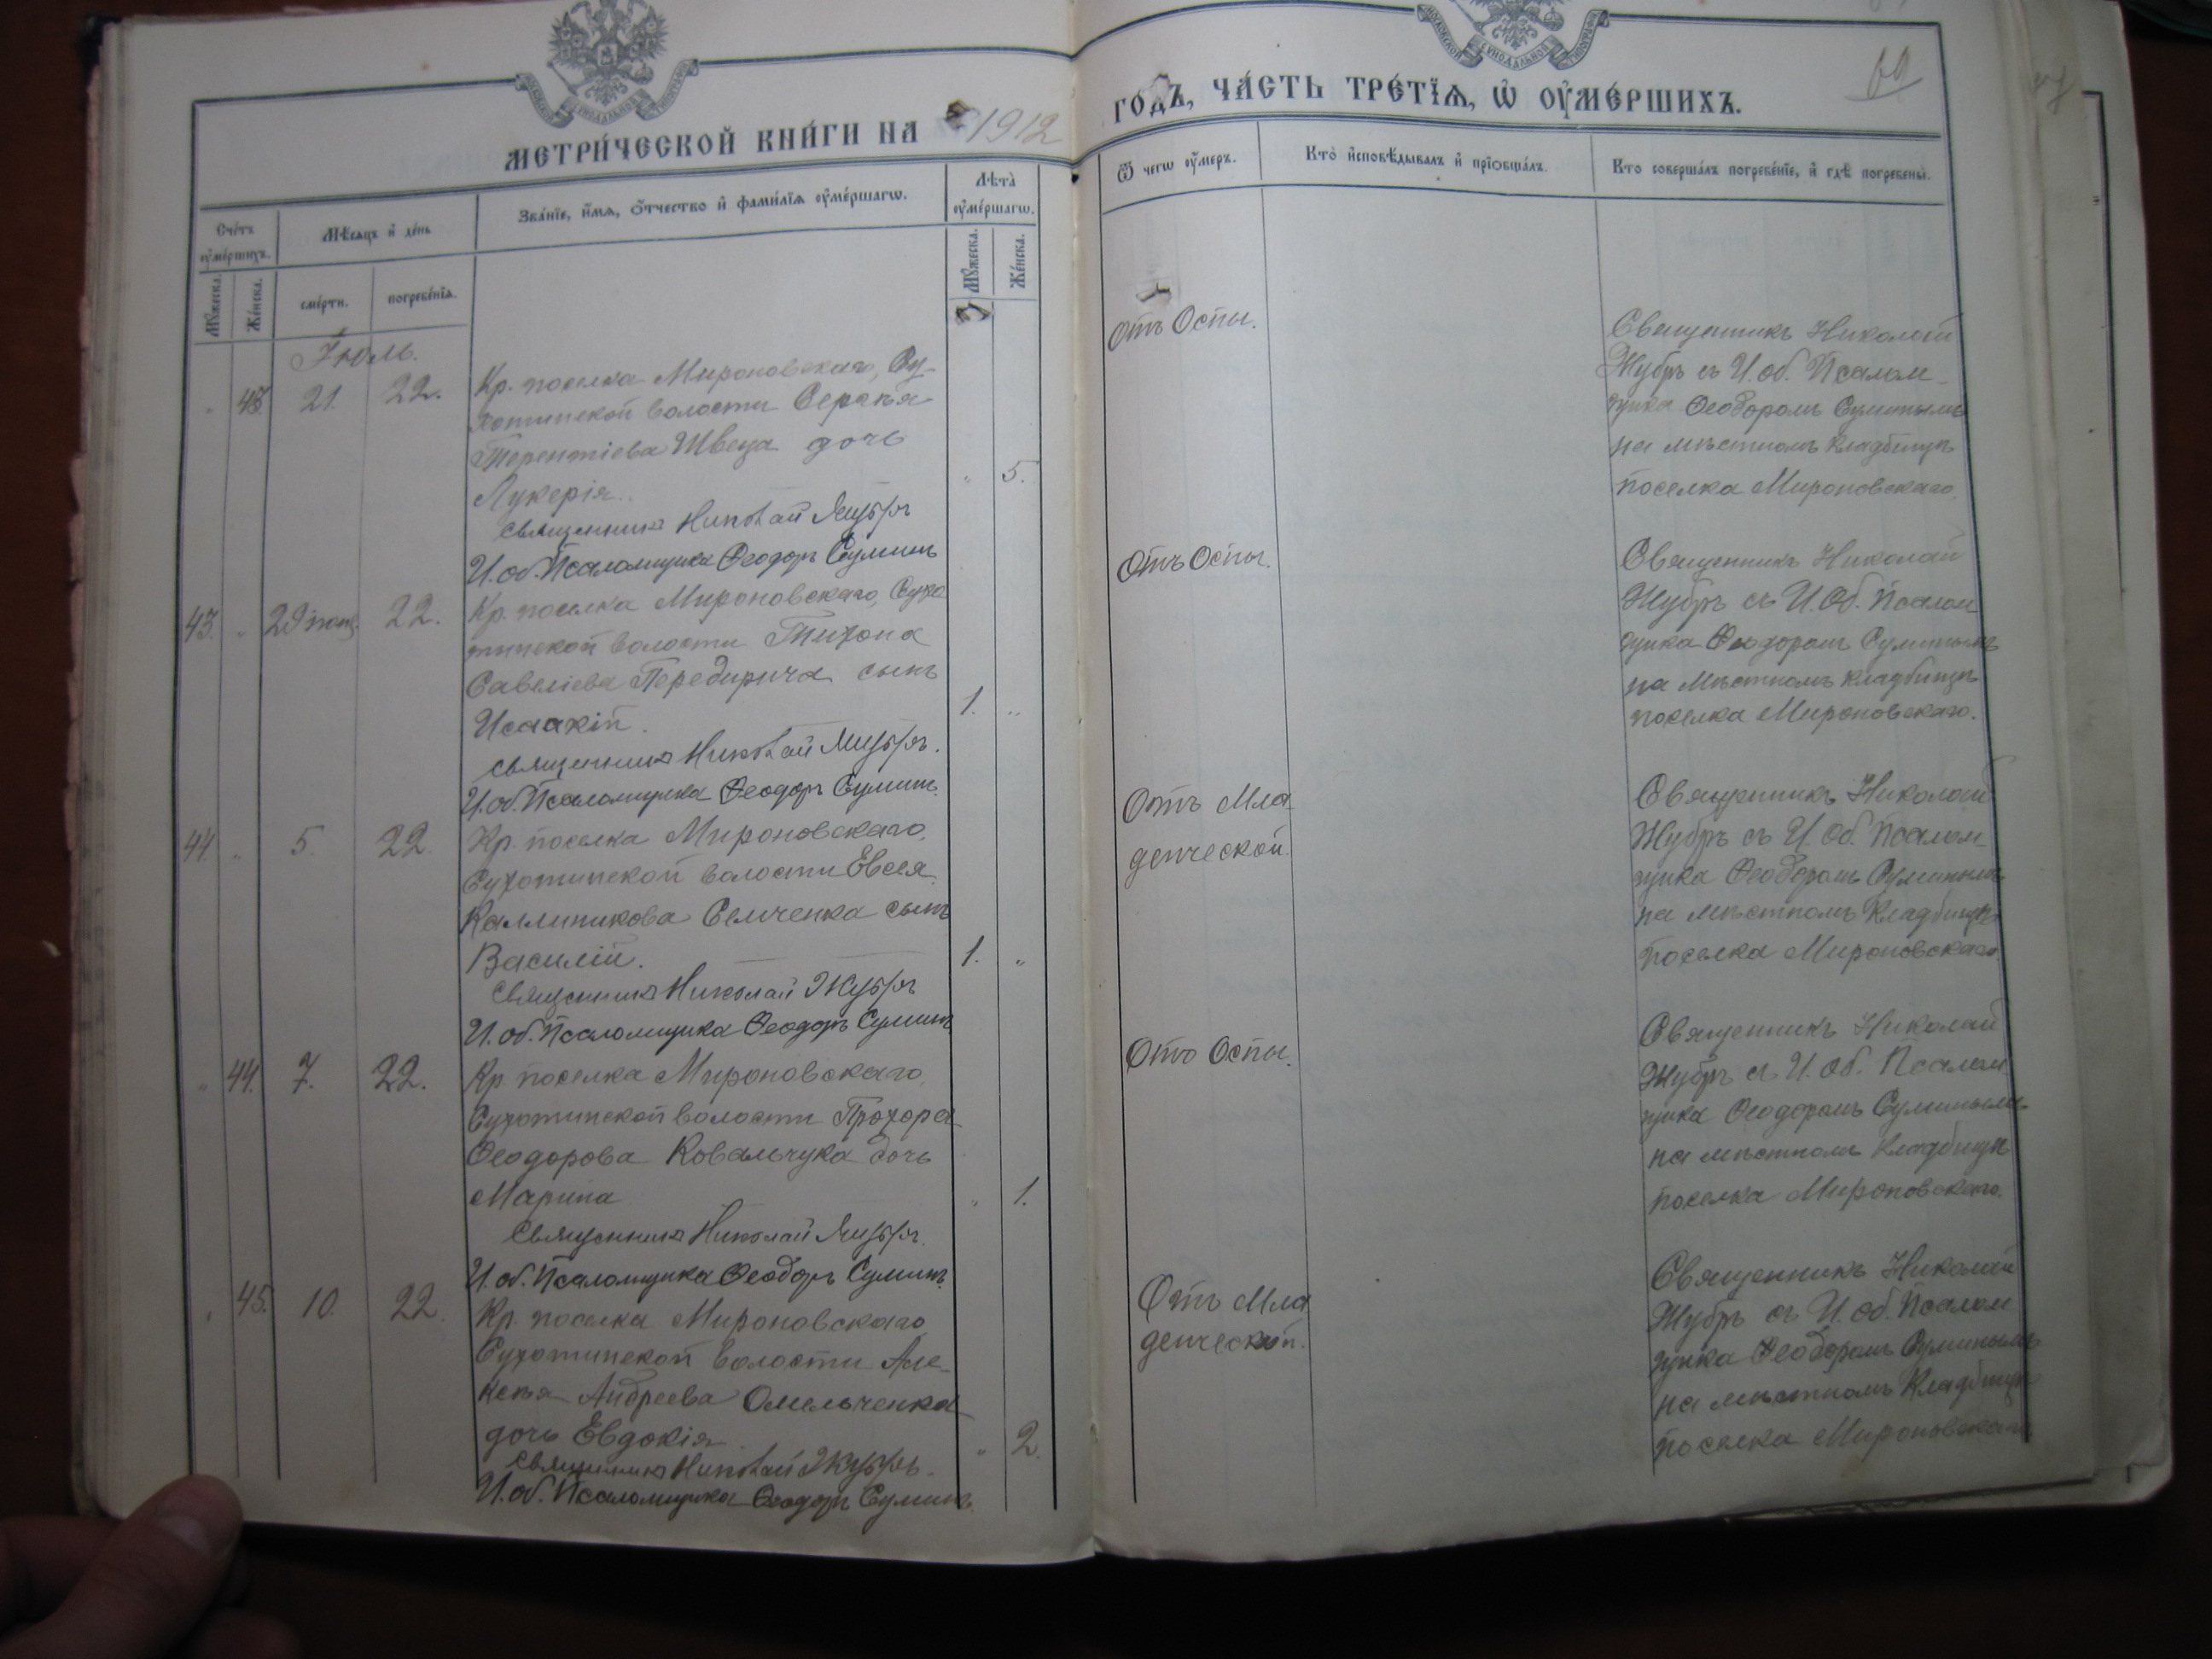 МЕТРИ́ЧЕСКОЙ КНИ́ГИ НА 1912
ГОДЪ, ЧА́СТЬ ТРЕ́ТІѦ, Ѡ҆ ОУ҆МЕ́РШИХЪ.
69
Сче́тъ оу҆ме́ршихъ.
Мѣ́сѧцъ и҆ де́нь
Зва́нїе, и҆́мѧ, о҆́тчество и҆ фами́лїѧ оу҆ме́ршагѡ.
Лѣта̀ оу҆ме́ршагѡ.
Ѿ чегѡ̀ оу҆́меръ.
Кто̀ и҆сповѣ́дывалъ и҆ прїобща́лъ.
Кто̀ соверша́лъ погребе́нїе, и҆ гдѣ̀ погребены̀.
Мꙋ́жеска.
Же́нска.
сме́рти.
погребе́нїѧ.
Мꙋ́жеска.
Же́нска.
Іюль.
43. 21. 22.
Кр. поселка Мироновскаго, Су-
хотинской волости Сергѣя
Терентіева Швеца дочь
Лукерія. " 5.
Священникъ Николай Жубръ
И. об. Псаломщика Ѳеодоръ Суминъ
Отъ Оспы.
Священникъ Николай
Жубръ съ И. об. Псалом-
щика Ѳеодоромъ Суминымъ
на мѣстномъ кладбищѣ
поселка Мироновскаго.
43. " 22.
Кр. поселка Мироновскаго, Сухо
тинской волости Тихона
Савеліева сынъ
Исаакій. 1. "
Священникъ Николай Жубръ.
И. об. Псаломщика Ѳеодоръ Суминъ.
Отъ Оспы.
Священникъ Николай
Жубръ съ И. Об. Псалом
щика Ѳеодоромъ Суминымъ
на мѣстномъ кладбищѣ
поселка Мироновскаго.
44. " 5. 22.
Кр. поселка Мироновскаго,
Сухотинской волости Евсея
Каллиникова Семченка сынъ
Василій. 1. "
Священникъ Николай Жубръ
И. об. Псаломщика Ѳеодоръ Суминъ
Отъ Мла
денческой.
Священникъ Николай
Жубръ съ И. Об. Псалом-
щика Ѳеодоромъ Суминымъ
на мѣстномъ Кладбищѣ
поселка Мироновскаго
" 44. 7. 22.
Кр. поселка Мироновскаго,
Сухотинской волости Прохора
Ѳеодорова Ковальчука дочь
Марина " 1.
Священникъ Николай Жубръ.
И. об. Псаломщика Ѳеодоръ Суминъ.
Отъ Оспы.
Священникъ Николай
Жубръ съ И. Об. Псалом
щика Ѳеодоромъ Суминымъ
на мѣстномъ Кладбищѣ
поселка Мироновскаго.
" 45. 10. 22.
Кр. поселка Мироновскаго
Сухотинской волости Але-
ксѣя Андреева Омельченка
дочь Евдокія " 2.
Священникъ Николай Жубръ.
И. об. Псаломщика Ѳеодоръ Суминъ.
Отъ Мла
денческой.
Священникъ Николай
Жубръ съ И. об. Псалом
щика Ѳеодоромъ Суминымъ
на мѣстномъ Кладбищѣ
поселка Мироновскаго